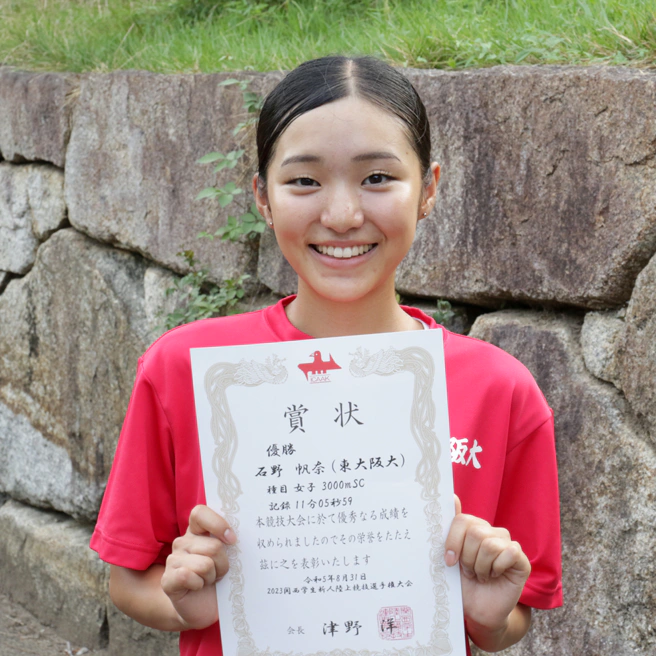 賞状
優勝
石野 帆奈(東大阪大)
種目 女子 3000mSC
記録 11分05秒59
本競技大会に於て優秀なる成績を
収められましたのでその栄誉をたたえ
茲に之を表彰いたします
令和5年8月31日
2023関西学生新人陸上競技選手権大会
会長 津野 洋
阪大